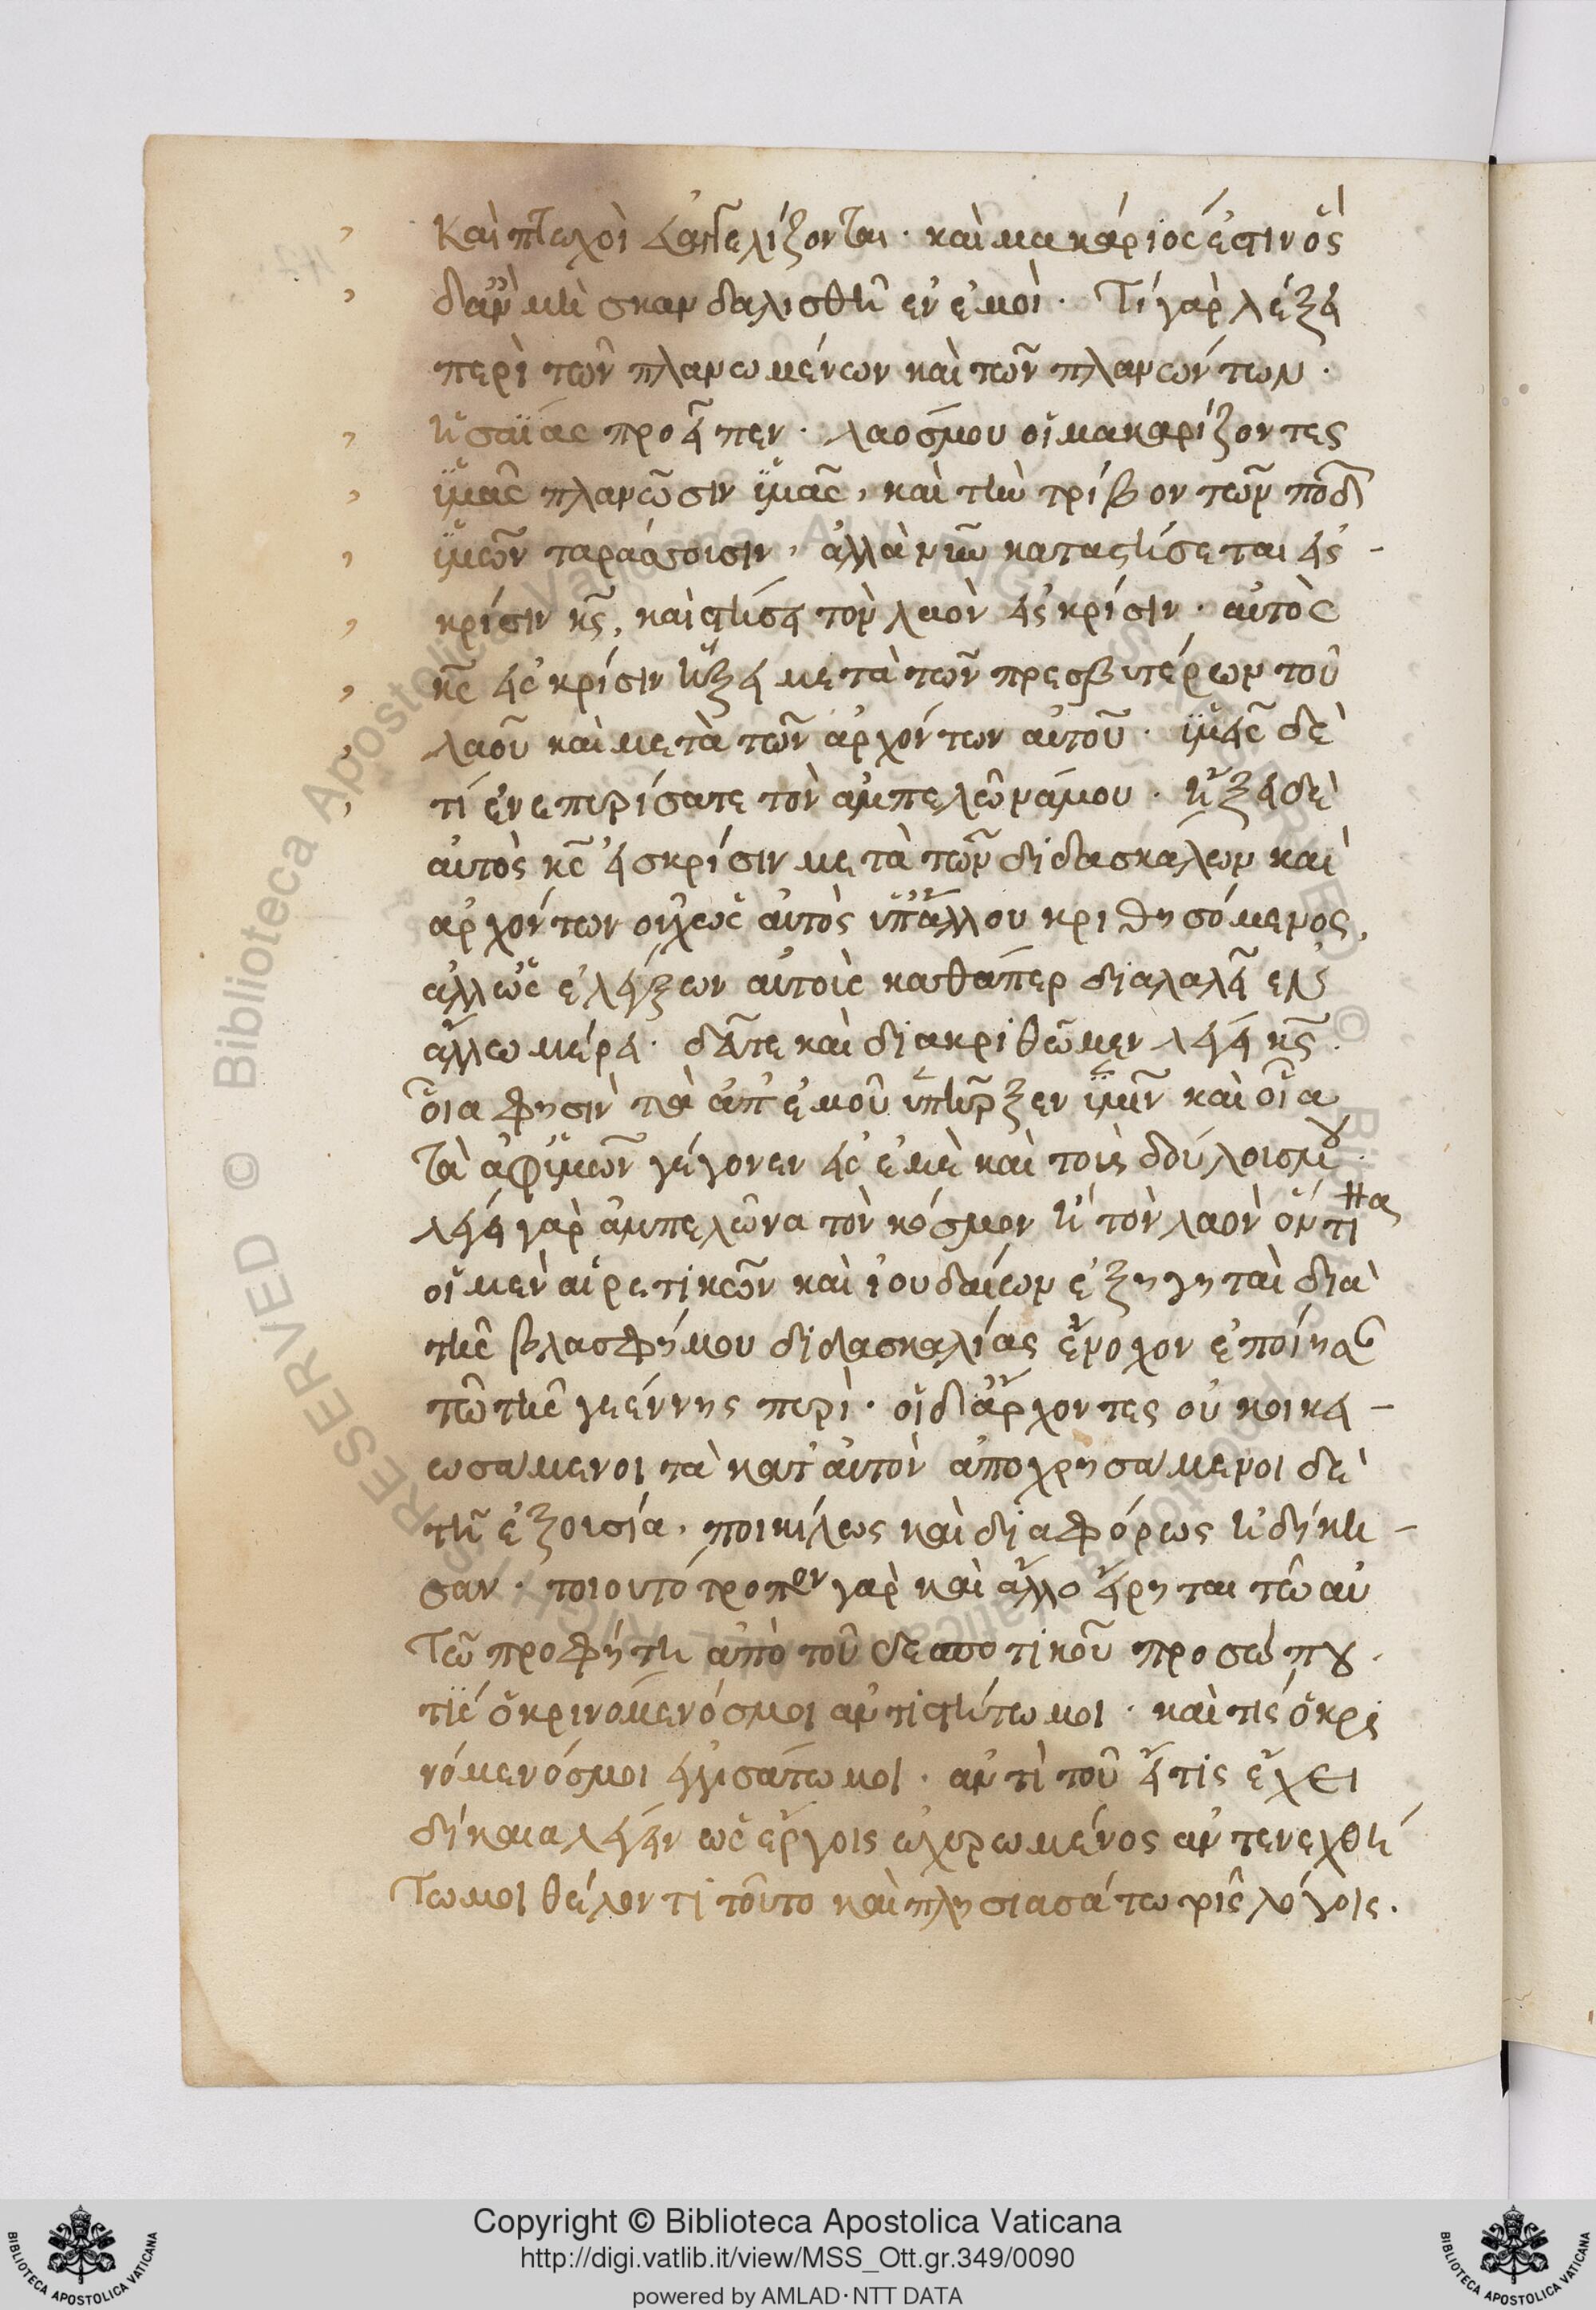 Καὶ πτωχοὶ εὐαγγελίζονται · καὶ μακάριός ἐστιν ὃς
δἂν μὴ σκανδαλισθῆ ἐν ἐμοὶ · Τί γὰρ λέξει
περὶ τῶν πλανωμένων καὶ τῶν πλανώντων ·
ἡσαΐας προεῖπεν · λαός μου οἱ μακαρίζοντες
ὑμᾶς πλανῶσιν ὑμᾶς, καὶ τὴν τρίβον τῶν ποδῶν
ὑμῶν ταράσσουσιν, ἀλλὰ νῦν καταστήσεται εἰς –
κρίσιν κς̃, καὶ στήσει τὸν λαὸν εἰς κρίσιν · αὐτὸς
κς̃ εἰς κρίσιν ἥξει μετὰ τῶν πρεσβυτέρων τοῦ
λαοῦ καὶ μετὰ τῶν ἀρχόντων αὐτοῦ · ὑμεῖς δὲ
τί ἐνεπυρίσατε τὸν ἀμπελῶνά μου · ἥξει δὲ
αὐτὸς κς̃ εἰς κρίσιν μετὰ τῶν διδασκάλων καὶ
ἀρχόντων οὐχ ὡς αὐτὸς ὑπ' ἄλλου κριθησόμενος,
ἀλλ' ὡς ἐλέγξων αὐτοὺς καθάπερ διαλαλεῖ ἐν
ἄλλω μέρει · δεῦτε καὶ διακριθῶμεν λέγει κς̃ ·
οἷα φησὶν τὰ ἀπ' ἐμοῦ ὑπῆρξεν ὑμῖν καὶ οἷα
τὰ ἀφ' ὑμῶν γέγονεν εἰς ἐμὲ καὶ τοὺς δούλους μου ·
λέγει γὰρ ἀμπελῶνα τὸν κόσμον ἢ τὸν λαὸν ὅντινα
οἱ μὲν αἱρετικῶν καὶ ἰουδαίων ἐξηγηταὶ διὰ
τῆς βλασφήμου διδασκαλίας ἔνοχον ἐποίησαν
τῶ τῆς γεέννης πυρὶ · οἱ δὲ ἄρχοντες οὐκ οἰκει –
ωσάμενοι τὰ κατ' αὐτὸν ἀποχρησάμενοι δὲ
τῆ ἐξουσία, ποικίλως καὶ διαφόρως ἠδίκη –
σαν · τοιουτότροπον γὰρ καὶ ἄλλο εἴρηται τῶ αὐ
τῶ προφήτη ἀπὸ τοῦ δεσποτικοῦ προσώπου ·
τίς ὁ κρινόμενός μοι ἀντιστήτω μοι · καὶ τίς ὁ κρι
νόμενός μοι ἐγγισάτω μοι · ἀντὶ τοῦ εἴ τις ἔχει
δίκαια λέγειν ὡς ἔργοις ὠχυρωμένος ἀντενεχθή
τω μοι θέλοντι τοῦτο καὶ πλησιασάτω τοῖς λόγοις.
Copyright © Biblioteca Apostolica Vaticana
http://digi.vatlib.it/view/MSS_Ott.gr.349/0090
powered by AMLAD·NTT DATA